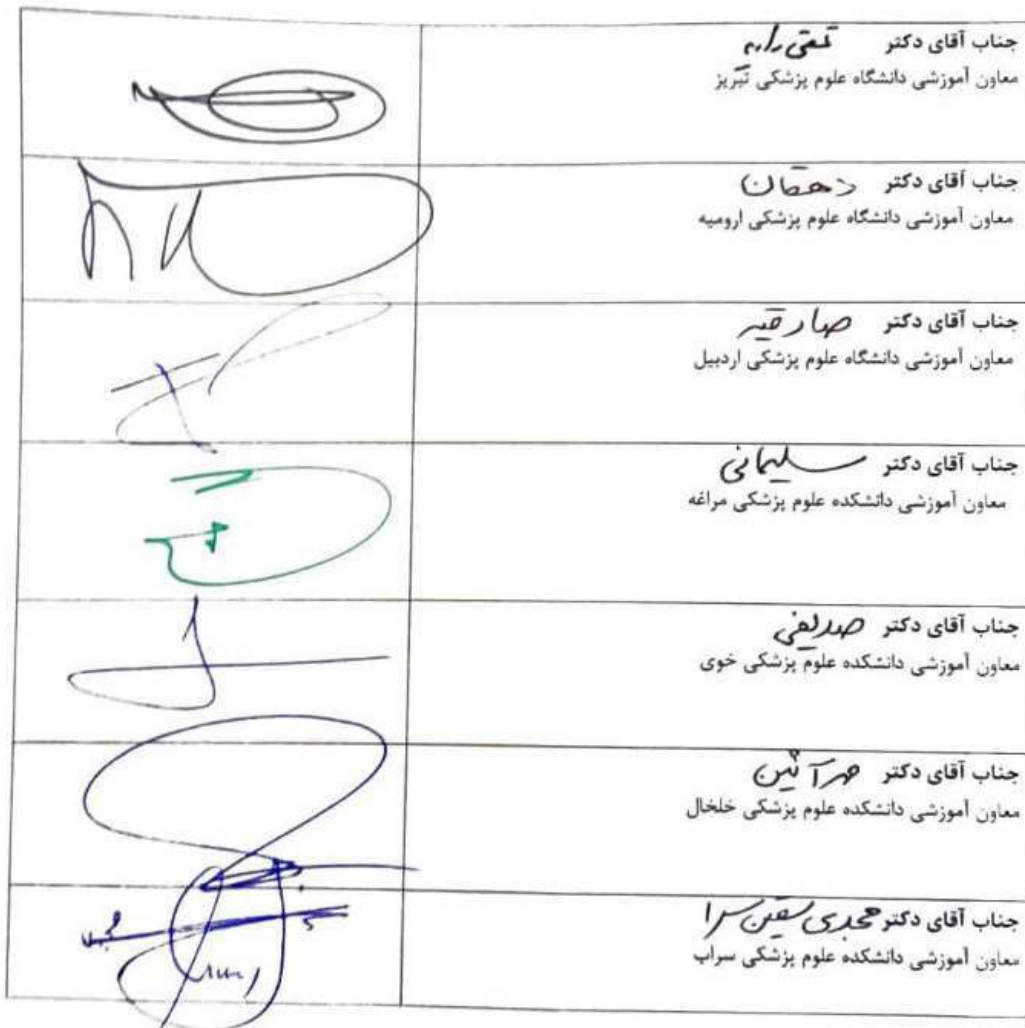 جناب آقای دکتر تقی زاده
معاون آموزشی دانشگاه علوم پزشکی تبریز
جناب آقای دکتر دهقان
معاون آموزشی دانشگاه علوم پزشکی ارومیه
جناب آقای دکتر صادقیه
معاون آموزشی دانشگاه علوم پزشکی اردبیل
جناب آقای دکتر سلیمانی
معاون آموزشی دانشکده علوم پزشکی مراغه
جناب آقای دکتر
معاون آموزشی دانشکده علوم پزشکی خوی
جناب آقای دکتر مهرآئین
معاون آموزشی دانشکده علوم پزشکی خلخال
جناب آقای دکتر محمدی
معاون آموزشی دانشکده علوم پزشکی سراب